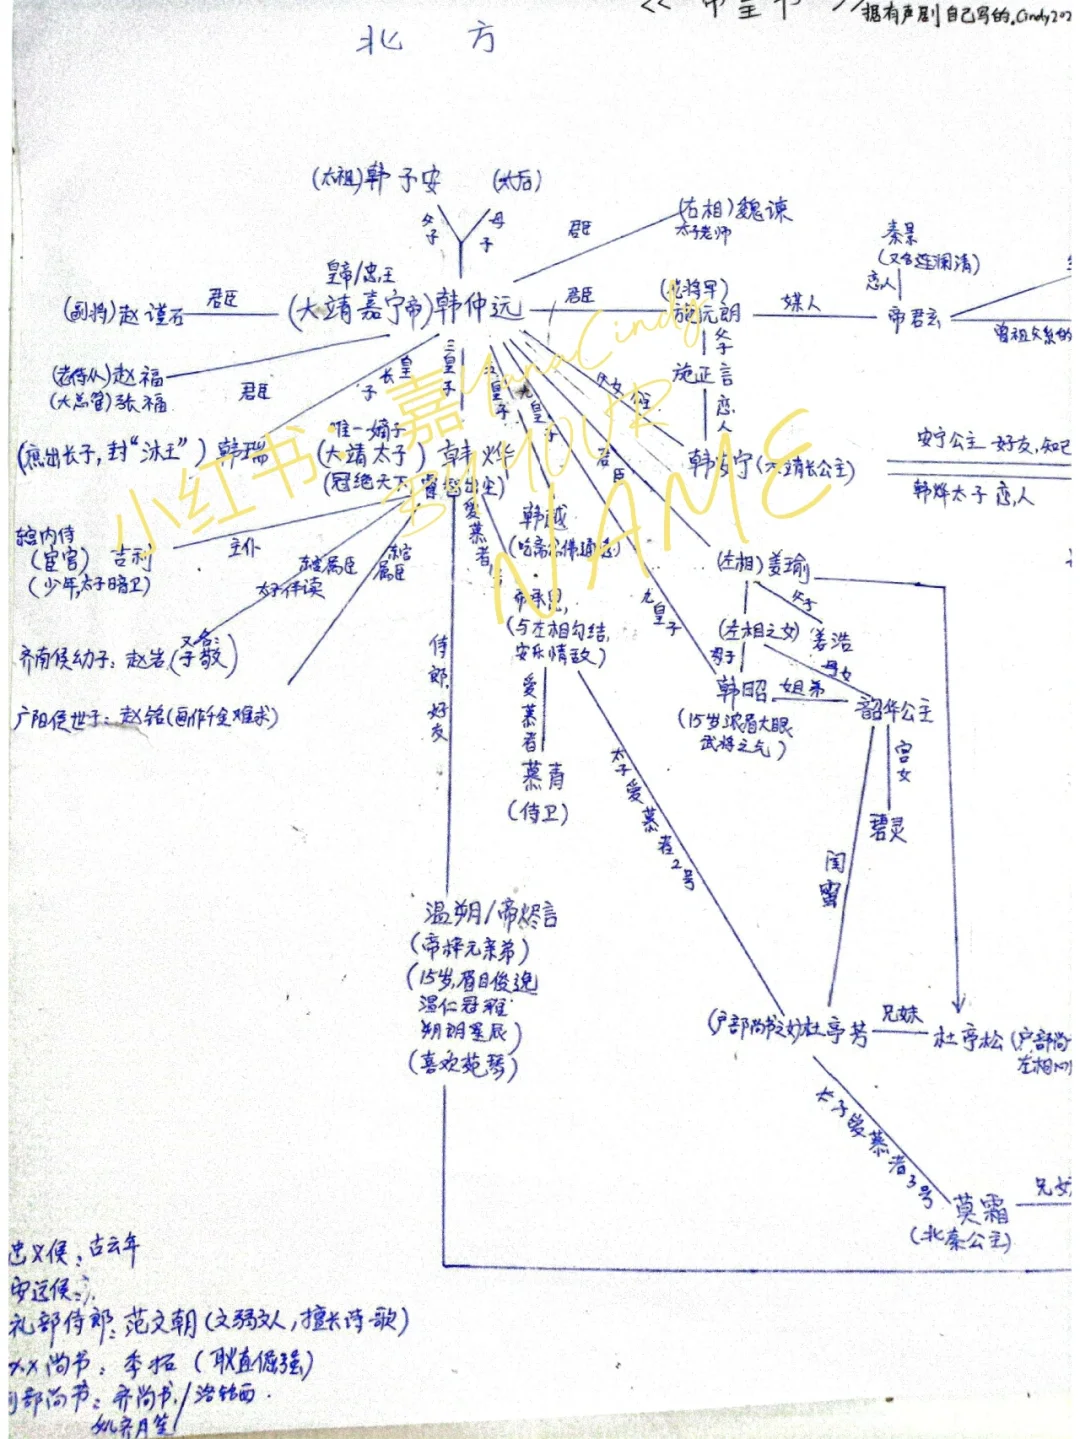 <<帝皇书>>
据有声剧自己写的.Cindy202
北方
(太祖)韩子安
(太后)
父子
母子
君臣
(右相)魏谏
太子老师
秦景
(又名连澜清)
恋人
皇帝/忠王
(大靖嘉宁帝)韩仲远
君臣
(副将)赵谨石
君臣
(老将军)
施元朗
媒人
帝君玄
曾祖父系的
父子
施正言
恋人
(老侍从)赵福
(大总管)张福
君臣
长皇子
三皇子
五皇子
九皇子
父女
君臣
(庶出长子,封“沐王”)韩瑞
唯一嫡子
(大靖太子)韩烨
(冠绝天下,睿智出尘)
韩安宁(大靖长公主)
安宁公主-好友,知己
韩烨太子 恋人
韩越
(吃斋念佛通透)
东宫内侍
(宦官)吉利
(少年,太子暗卫)
主仆
东宫属臣
太子伴读
东宫属臣
爱慕者
帝承恩,
(与左相勾结,
安乐情敌)
爱慕者
慕青
(侍卫)
齐南侯幼子:赵岩(又名:子敬)
广阳侯世子:赵铭(画作千金难求)
侍郎,好友
(左相)姜瑜
父子
(左相之女)
姜浩
九皇子
母子
母女
韩昭
姐弟
韶华公主
(15岁浓眉大眼
武将之气)
宫女
碧灵
闺蜜
太子爱慕者2号
温朔/帝烬言
(帝梓元亲弟)
(15岁,眉目俊逸
温仁冠雅
朔朗星辰)
(喜欢苑琴)
(户部尚书之女)杜亭芳
兄妹
杜亭松(户部尚
左相
太子爱慕者3号
莫霜
(北秦公主)
兄妹
忠义侯:古云年
安远侯:
礼部侍郎:范文朝(文弱文人,擅长诗歌)
XX尚书:李拓(耿直倔强)
部尚书:齐尚书/洛铭西
小红书
嘉
YanaCindy
BY YOUR
NAME